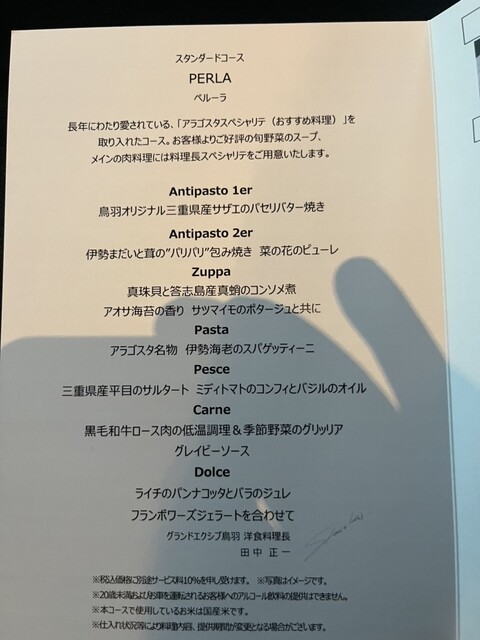 スタンダードコース
PERLA
ペルーラ
長年にわたり愛されている、「アラゴスタスペシャリテ（おすすめ料理）」を
取り入れたコース。お客様よりご好評の旬野菜のスープ、
メインの肉料理には料理長スペシャリテをご用意いたします。
Antipasto 1er
鳥羽オリジナル三重県産サザエのパセリバター焼き
Antipasto 2er
伊勢まだいと茸の”パリパリ”包み焼き 菜の花のピューレ
Zuppa
真珠貝と答志島産真蛸のコンソメ煮
アオサ海苔の香り サツマイモのポタージュと共に
Pasta
アラゴスタ名物 伊勢海老のスパゲッティーニ
Pesce
三重県産平目のサルタート ミディトマトのコンフィとバジルのオイル
Carne
黒毛和牛ロース肉の低温調理＆季節野菜のグリッリア
グレイビーソース
Dolce
ライチのパンナコッタとバラのジュレ
フランボワーズジェラートを合わせて
グランドエクシブ鳥羽 洋食料理長
田中 正一
※税込価格に別途サービス料10%を申し受けます。 ※写真はイメージです。
※20歳未満および お車を運転されるお客様へのアルコール飲料の提供はできません。
※本コースで使用しているお米は国産米です。
※仕入れ状況等により料理内容、提供期間が変更となる場合がございます。